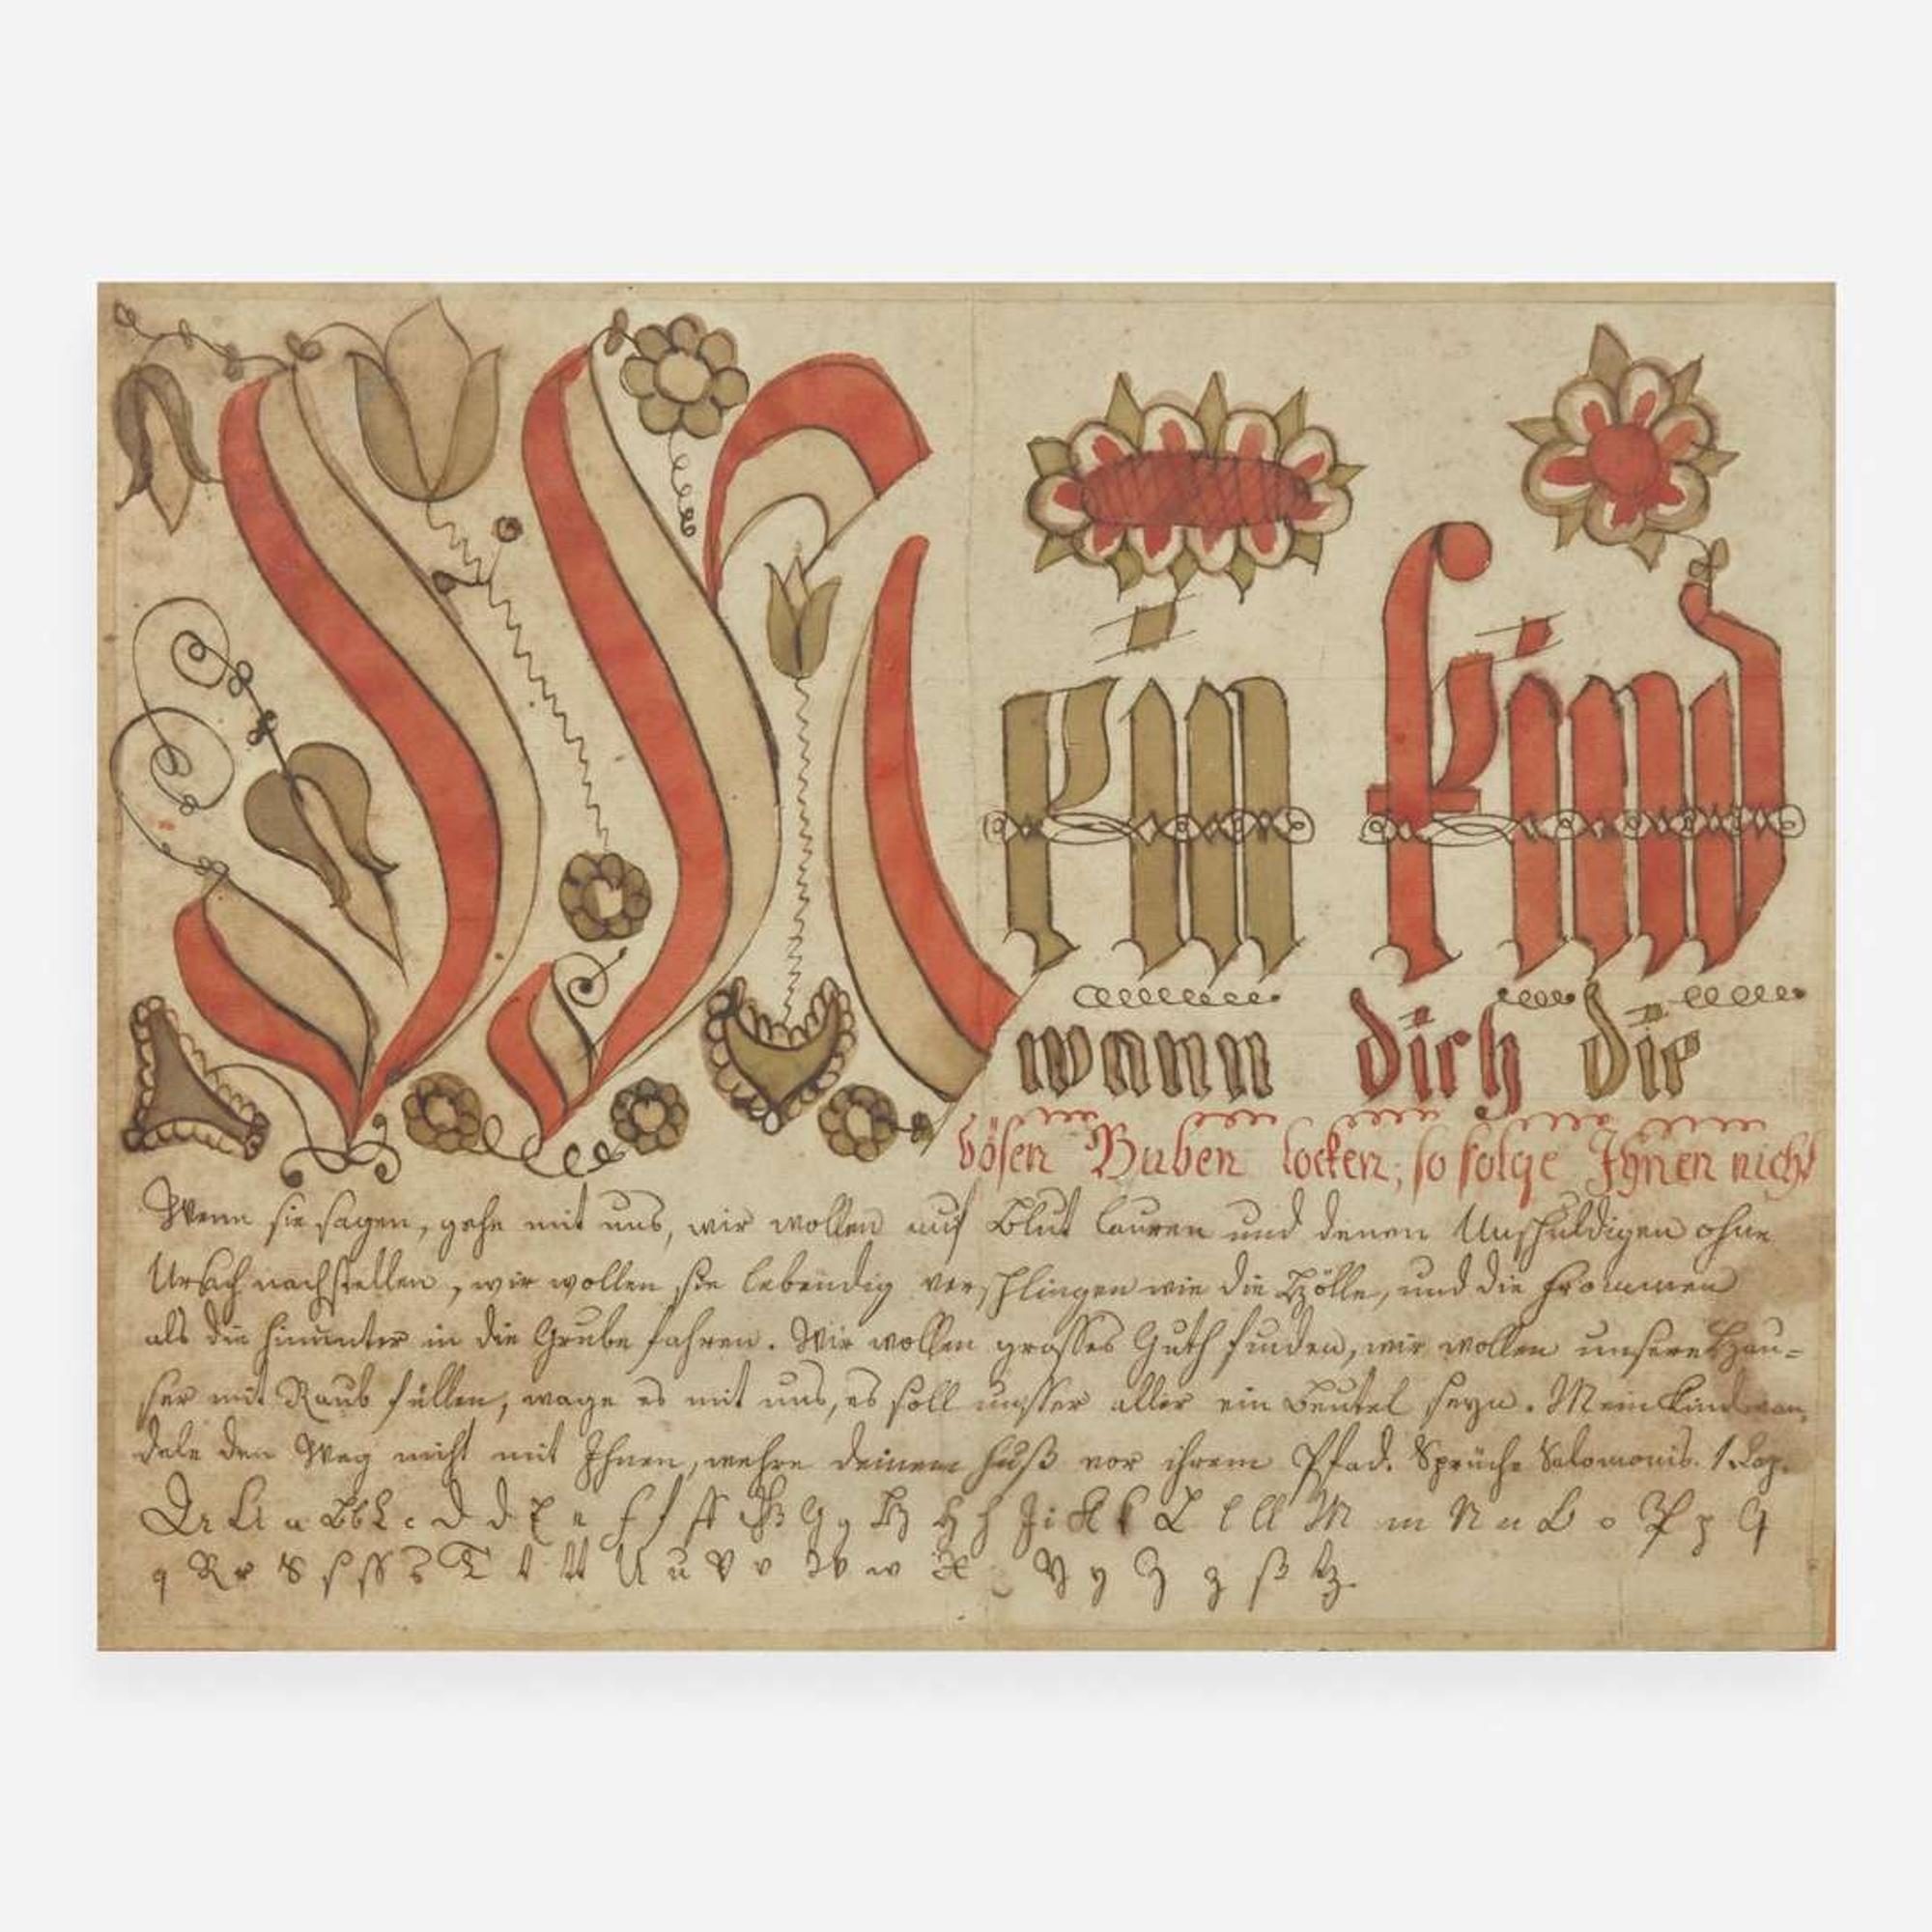 Mein kind
wann dich die
bösen Buben locken, so folge Ihnen nicht
Wenn sie sagen, gehe mit uns, wir wollen auf Blut lauren und denen Unschuldigen ohne
Ursach nachstellen, wir wollen sie lebendig verschlingen wie die Hölle, und die frommen
als die hinunter in die Grube fahren. Wir wollen grosses Guth finden, wir wollen unsere Häu=
ser mit Raub füllen, wage es mit uns, es soll unsser aller ein Beutel seyn. Mein kind wan,
dele den Weg nicht mit Ihnen, wehre deinem fuß vor ihrem Pfad. Sprüche Salomonis. 1. Cap.
a B b c D d E e f f ff G g H h J i K k L l ll M m N n O o P p Q
q R r S s ss T t tt U u V v W w X Y y Z z ß tz.